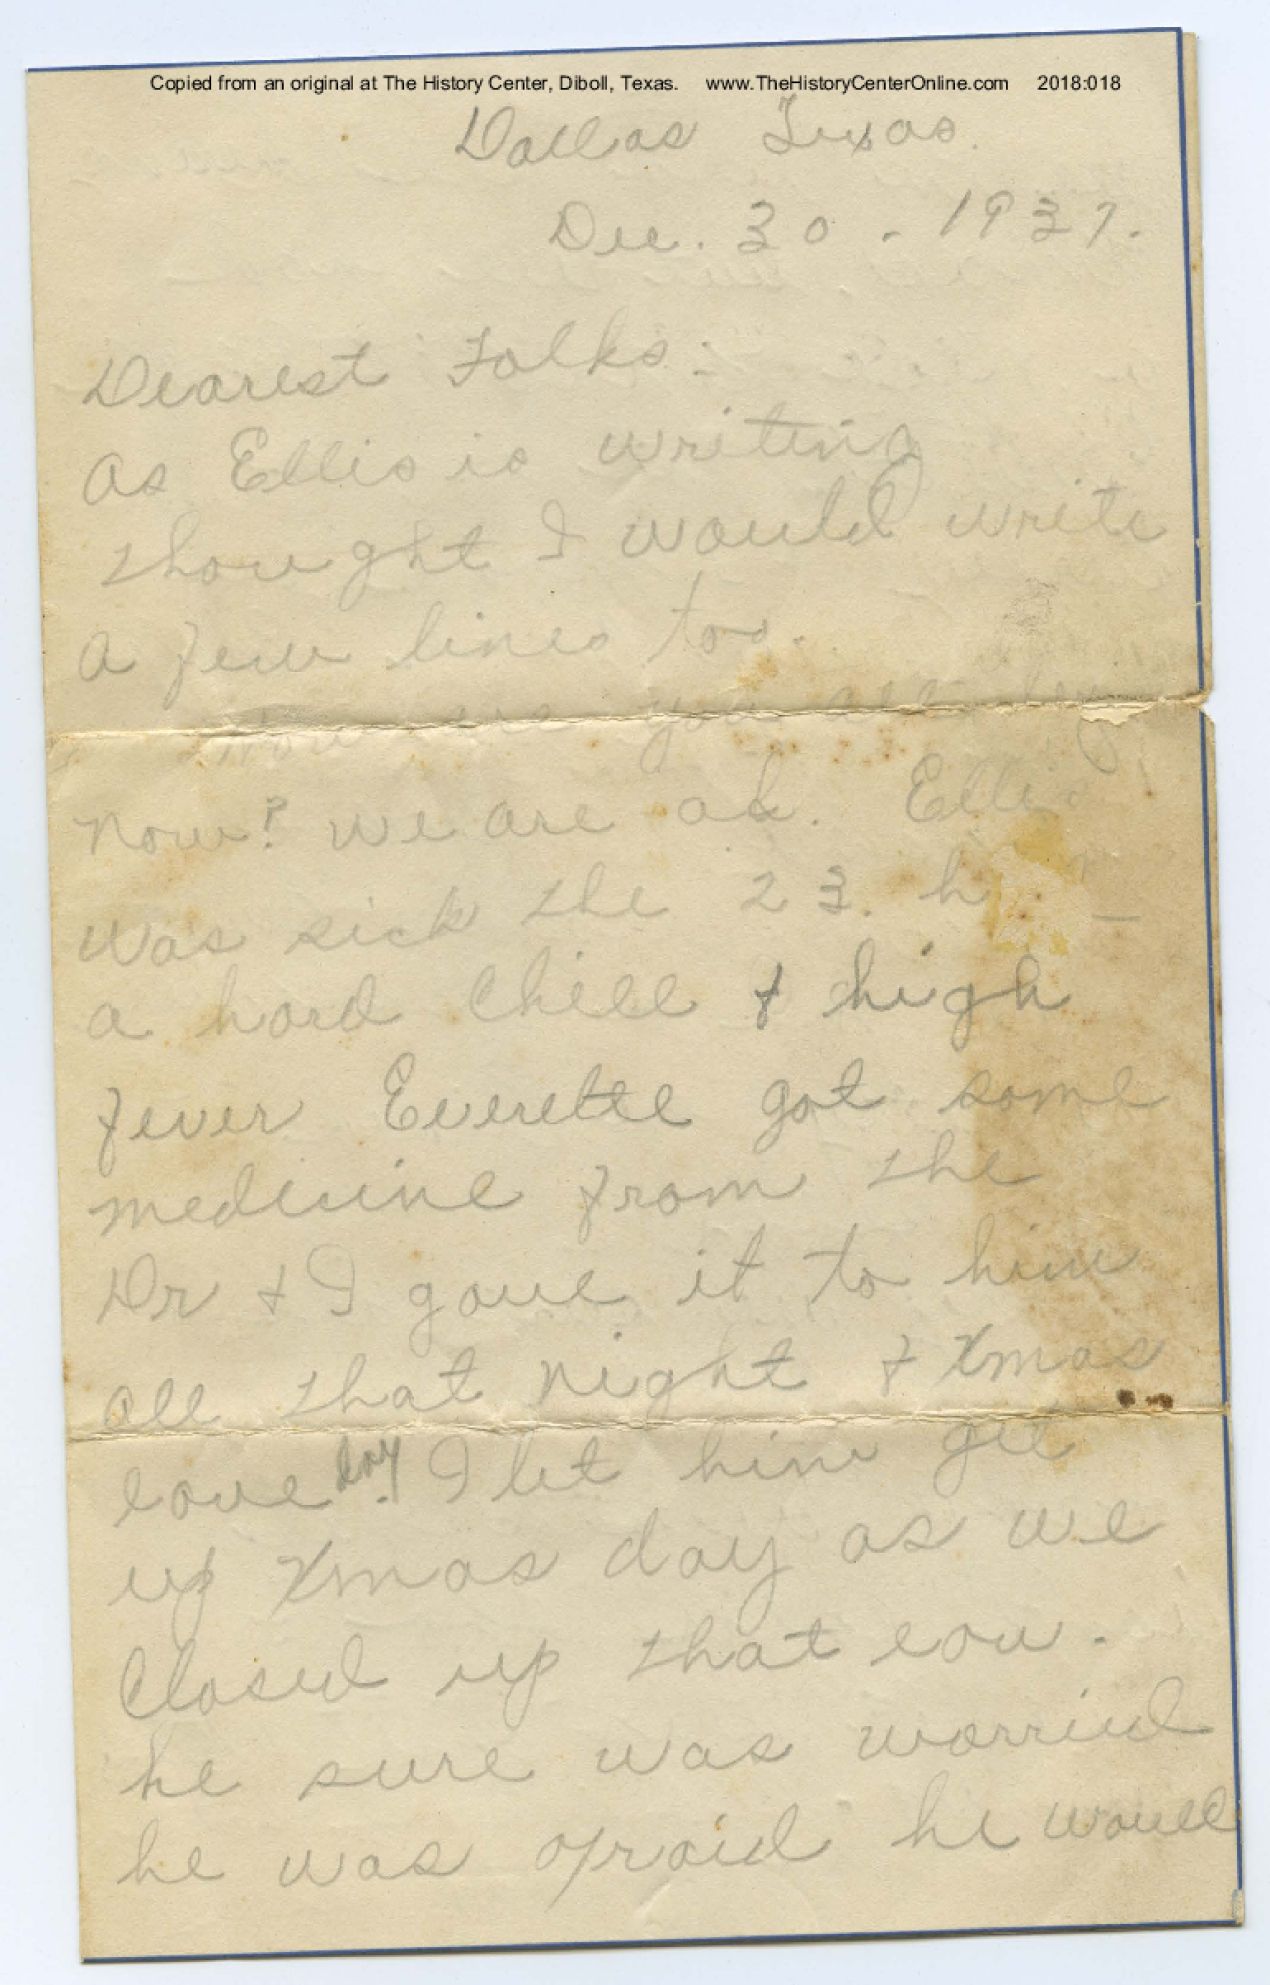 Copied from an original at The History Center, Diboll, Texas. www.TheHistoryCenterOnline.com 2018:018
Dallas Texas.
Dec. 30. 1937.
Dearest Folks:
as Ellis is writing
thought I would write
a few lines too.
How are you all by
now? we are ok. Ellis
was sick the 23. h
a hard Chill & high
fever Everette got some
medicine from the
Dr & I gave it to him
all that night & Xmas
eave day. I let him get
up Xmas day as we
Closed up that eav.
he sure was worried
he was afraid he would